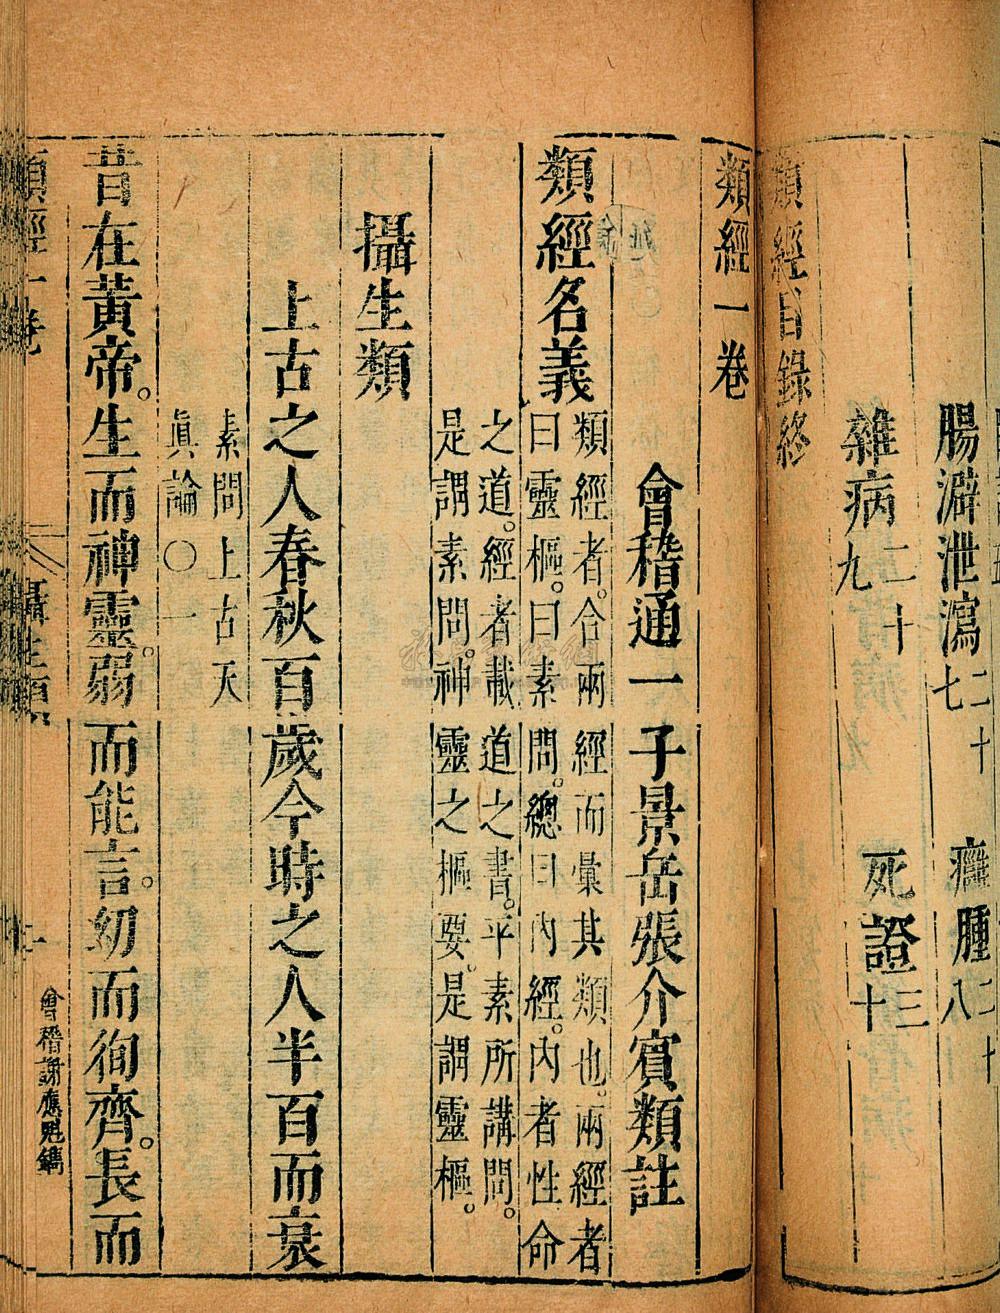 腸澼泄瀉二十七　癰腫二十八
雜病二十九　死證三十
類經目錄終
類經一卷
會稽通一子景岳張介賓類註
類經名義
類經者。合兩經而彙其類也。兩經者
曰靈樞。曰素問。總曰內經。內者性命
之道。經者載道之書。平素所講問。
是謂素問。神靈之樞要。是謂靈樞。
攝生類
上古之人春秋百歲今時之人半百而衰
素問上古天
眞論○一
昔在黃帝。生而神靈。弱而能言。幼而徇齊。長而
會稽謝應魁鐫
類經一卷　攝生類　一